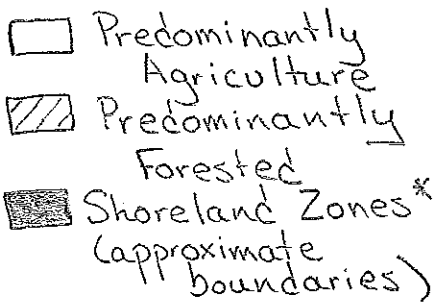 Predominantly
Agriculture
Predominantly
Forested
Shoreland Zones*
(approximate
boundaries)